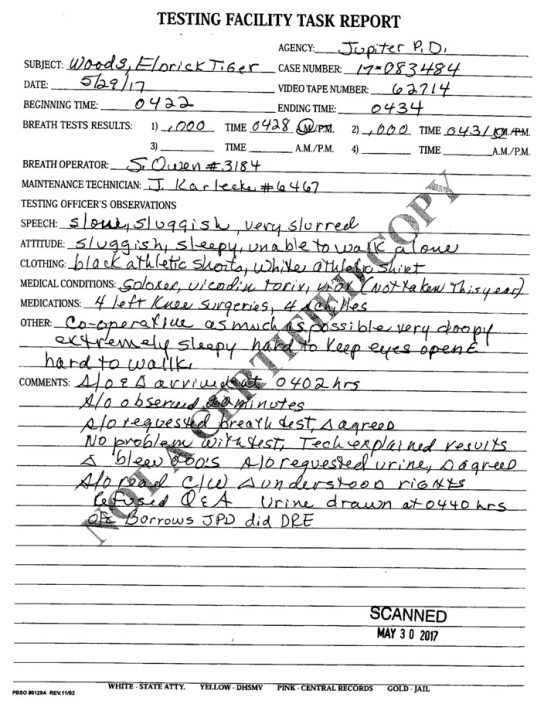 TESTING FACILITY TASK REPORT
AGENCY: Jupiter P.D.
SUBJECT: Woods, Eldrick Tiger CASE NUMBER: 17-083484
DATE: 5/29/17 VIDEO TAPE NUMBER: 62714
BEGINNING TIME: 0422 ENDING TIME: 0434
BREATH TESTS RESULTS: 1) .000 TIME 0428 A.M./P.M. 2) .000 TIME 0431 A.M./P.M.
3) TIME A.M./P.M. 4) TIME A.M./P.M.
BREATH OPERATOR: S. Owen #3184
MAINTENANCE TECHNICIAN: J. Karlecke #6467
TESTING OFFICER'S OBSERVATIONS
SPEECH: slow, sluggish, very slurred
ATTITUDE: sluggish, sleepy, unable to walk alone
CLOTHING: black athletic shorts, white athletic shirt
MEDICAL CONDITIONS: Solorex, vicodin torix, (Not taken This year)
MEDICATIONS: 4 left Knee surgeries, 4
OTHER: Co-operative as much as possible very droopy
extremely sleepy hard to keep eyes open &
hard to walk
COMMENTS: A/O & Δ arrived at 0402 hrs
A/O observed 20 minutes
A/O requested breath test, Δ agreed
No problem with test, Tech explained results
Δ blew 000's A/O requested urine, Δ agreed
A/O read C/W Δ understood rights
Refused Q&A Urine drawn at 0440 hrs
Ofc Borrows JPD did DRE
NOT A CERTIFIED COPY
SCANNED
MAY 30 2017
WHITE - STATE ATTY. YELLOW - DHSMV PINK - CENTRAL RECORDS GOLD - JAIL
PBSO #0129A REV.11/02